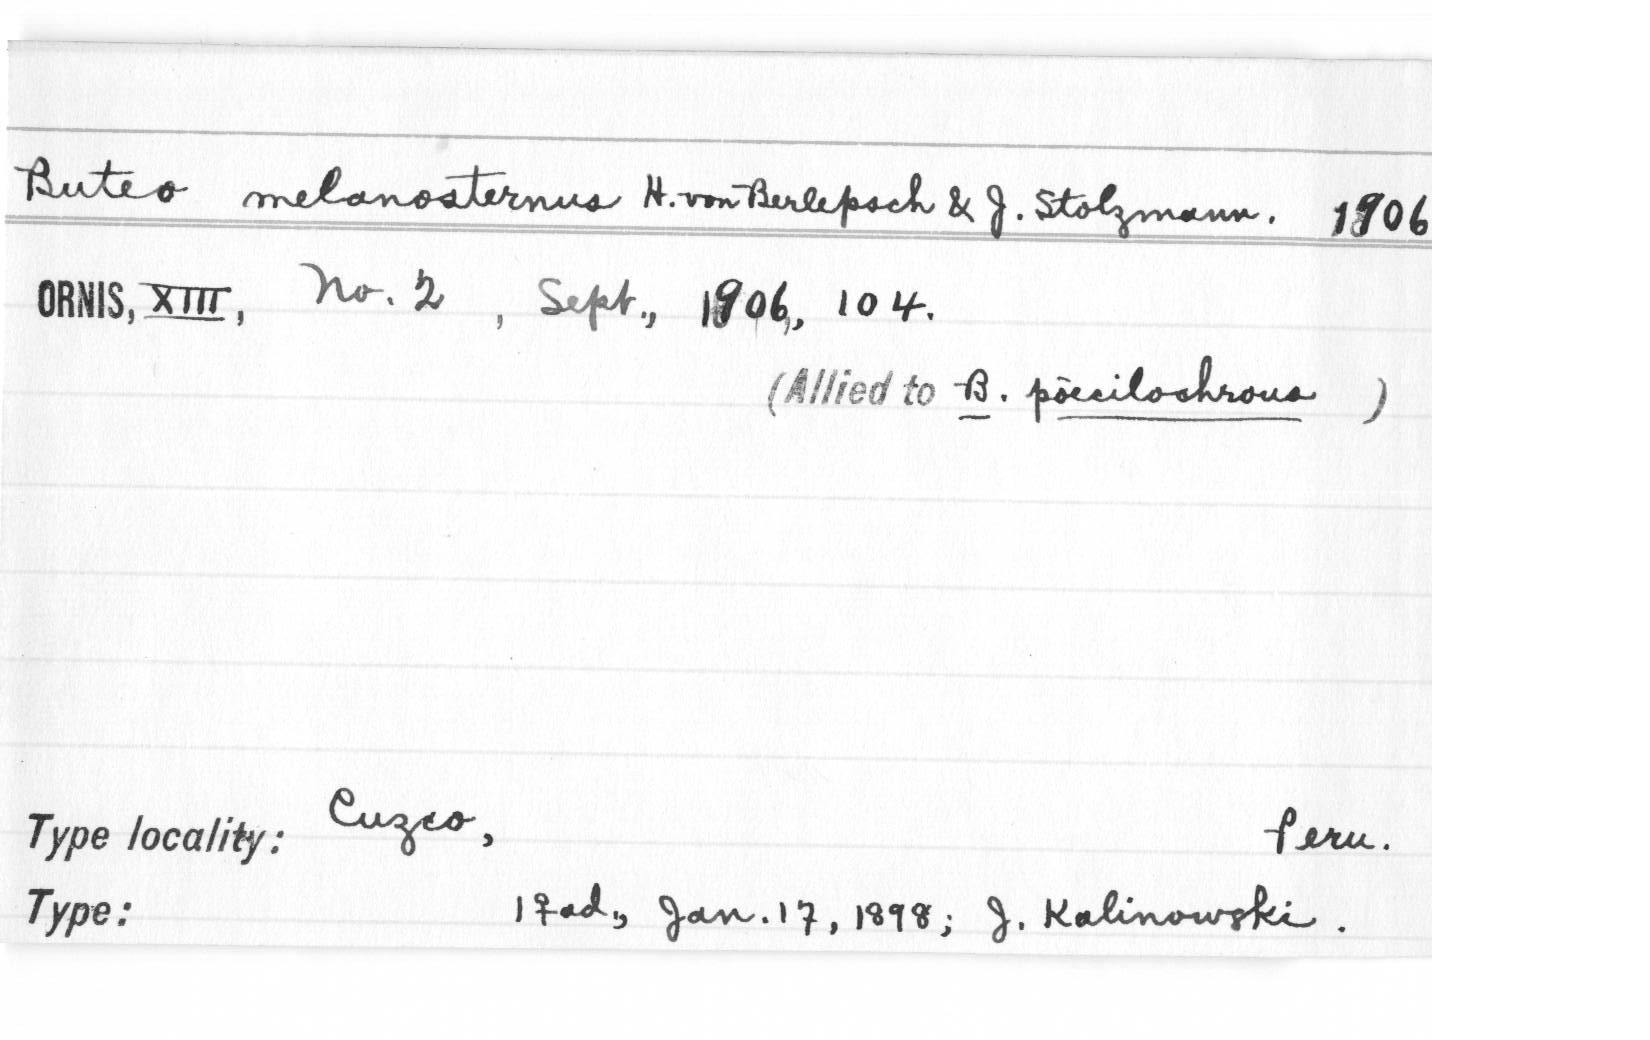 Buteo melanosternus H. von Berlepsch & J. Stolzmann. 1906
ORNIS, XIII, No. 2, Sept., 1906, 104.
(Allied to B. pöecilochrous)
Type locality: Cuzco, Peru.
Type: 1 ♀ ad., Jan. 17, 1898; J. Kalinowski.